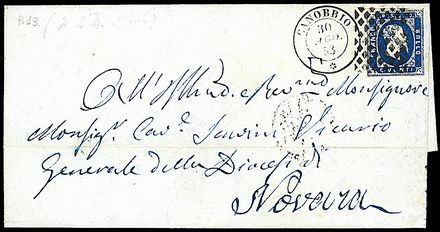 CANOBBIO
30
53
FRANCO BOLLO
C. VENTI
All' Illmo. e Revmo Monsignore
Monsigr. Cave. Vicario
Generale della Diocesi di
Novara